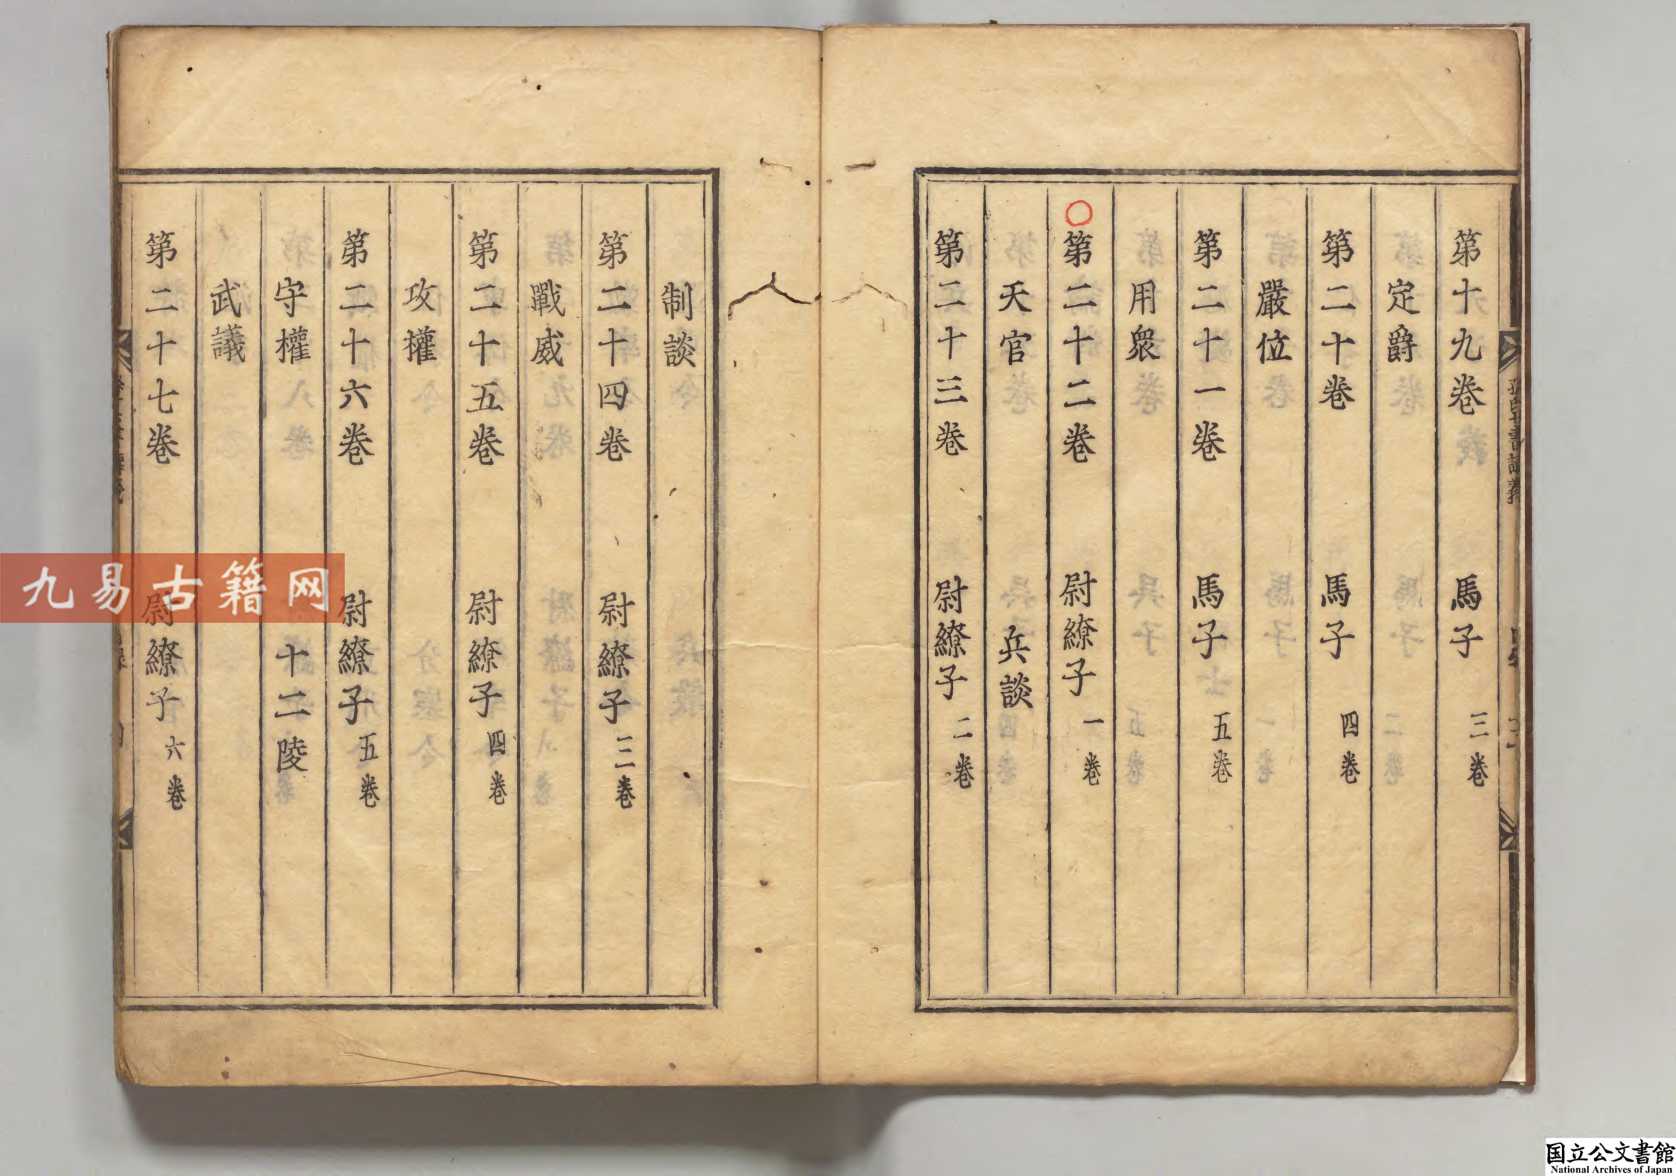 第十九卷 馬子 三卷
定爵
第二十卷 馬子 四卷
嚴位
第二十一卷 馬子 五卷
用衆
第二十二卷 尉繚子 一卷
天官 兵談
第二十三卷 尉繚子 二卷
制談
第二十四卷 尉繚子 三卷
戰威
第二十五卷 尉繚子 四卷
攻權
第二十六卷 尉繚子 五卷
守權 十二陵
武議
第二十七卷 尉繚子 六卷
九易古籍网
国立公文書館
National Archives of Japan